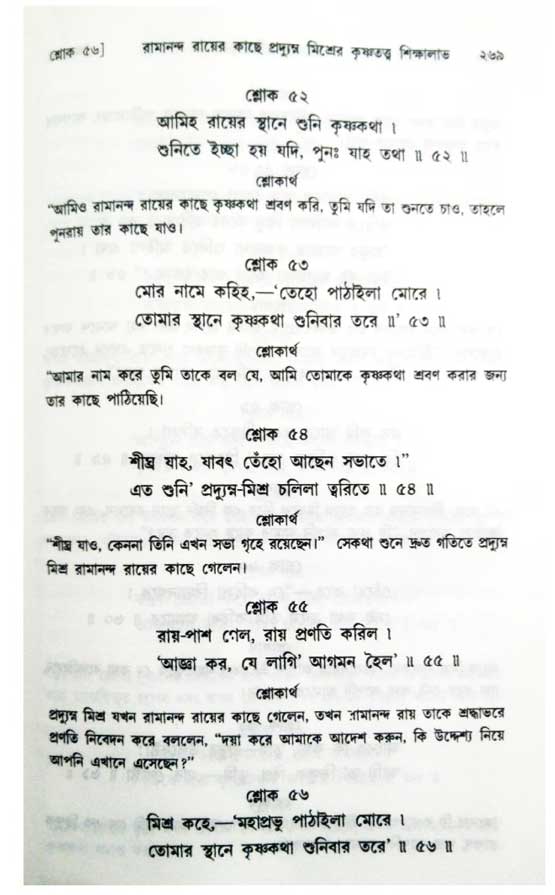 শ্লোক ৫৬]
রামানন্দ রায়ের কাছে প্রদ্যুম্ন মিশ্রের কৃষ্ণতত্ত্ব শিক্ষালাভ
২৬৯
শ্লোক ৫২
আমিহ রায়ের স্থানে শুনি কৃষ্ণকথা ।
শুনিতে ইচ্ছা হয় যদি, পুনঃ যাহ তথা ॥ ৫২ ॥
শ্লোকার্থ
“আমিও রামানন্দ রায়ের কাছে কৃষ্ণকথা শ্রবণ করি, তুমি যদি তা শুনতে চাও, তাহলে
পুনরায় তার কাছে যাও।
শ্লোক ৫৩
মোর নামে কহিহ,—‘তেহো পাঠাইলা মোরে ।
তোমার স্থানে কৃষ্ণকথা শুনিবার তরে ॥’ ৫৩ ॥
শ্লোকার্থ
“আমার নাম করে তুমি তাকে বল যে, আমি তোমাকে কৃষ্ণকথা শ্রবণ করার জন্য
তার কাছে পাঠিয়েছি।
শ্লোক ৫৪
শীঘ্র যাহ, যাবৎ তেঁহো আছেন সভাতে ।”
এত শুনি’ প্রদ্যুম্ন-মিশ্র চলিলা ত্বরিতে ॥ ৫৪ ॥
শ্লোকার্থ
“শীঘ্র যাও, কেননা তিনি এখন সভা গৃহে রয়েছেন।” সেকথা শুনে দ্রুত গতিতে প্রদ্যুম্ন
মিশ্র রামানন্দ রায়ের কাছে গেলেন।
শ্লোক ৫৫
রায়-পাশ গেল, রায় প্রণতি করিল ।
‘আজ্ঞা কর, যে লাগি’ আগমন হৈল’ ॥ ৫৫ ॥
শ্লোকার্থ
প্রদ্যুম্ন মিশ্র যখন রামানন্দ রায়ের কাছে গেলেন, তখন রামানন্দ রায় তাকে শ্রদ্ধাভরে
প্রণতি নিবেদন করে বললেন, “দয়া করে আমাকে আদেশ করুন, কি উদ্দেশ্য নিয়ে
আপনি এখানে এসেছেন?”
শ্লোক ৫৬
মিশ্র কহে,—‘মহাপ্রভু পাঠাইলা মোরে ।
তোমার স্থানে কৃষ্ণকথা শুনিবার তরে’ ॥ ৫৬ ॥